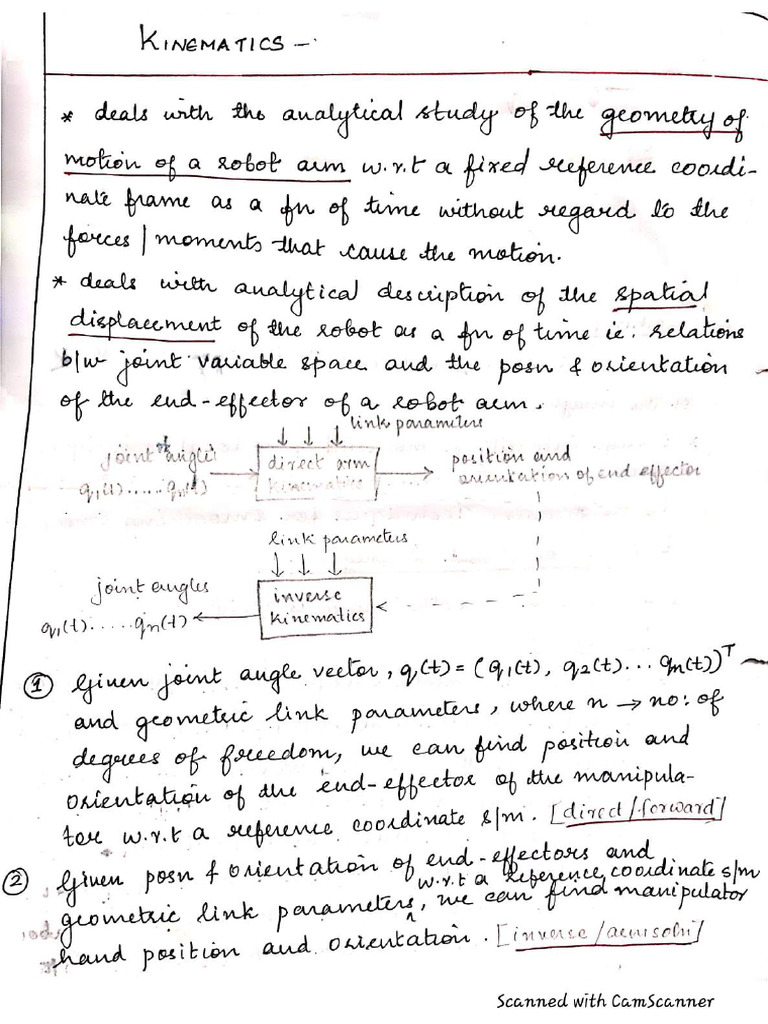 KINEMATICS -
* deals with the analytical study of the geometry of
motion of a robot arm w.r.t a fixed reference coordi-
nate frame as a fn of time without regard to the
forces / moments that cause the motion.
* deals with analytical description of the spatial
displacement of the robot as a fn of time ie: relations
b/w joint variable space and the posn & orientation
of the end-effector of a robot arm.
link parameters
joint angles direct arm position and
q1(t).....qn(t) kinematics orientation of end effector
link parameters
joint angles inverse
q1(t).....qn(t) kinematics
① Given joint angle vector, q(t) = (q1(t), q2(t)... qn(t))T
and geometric link parameters, where n → no: of
degrees of freedom, we can find position and
orientation of the end-effector of the manipula-
tor w.r.t a reference coordinate s/m. [direct/forward]
② Given posn & orientation of end-effectors and
w.r.t a reference coordinate s/m
geometric link parameters, we can find manipulator
hand position and orientation. [inverse/arm soln]
Scanned with CamScanner